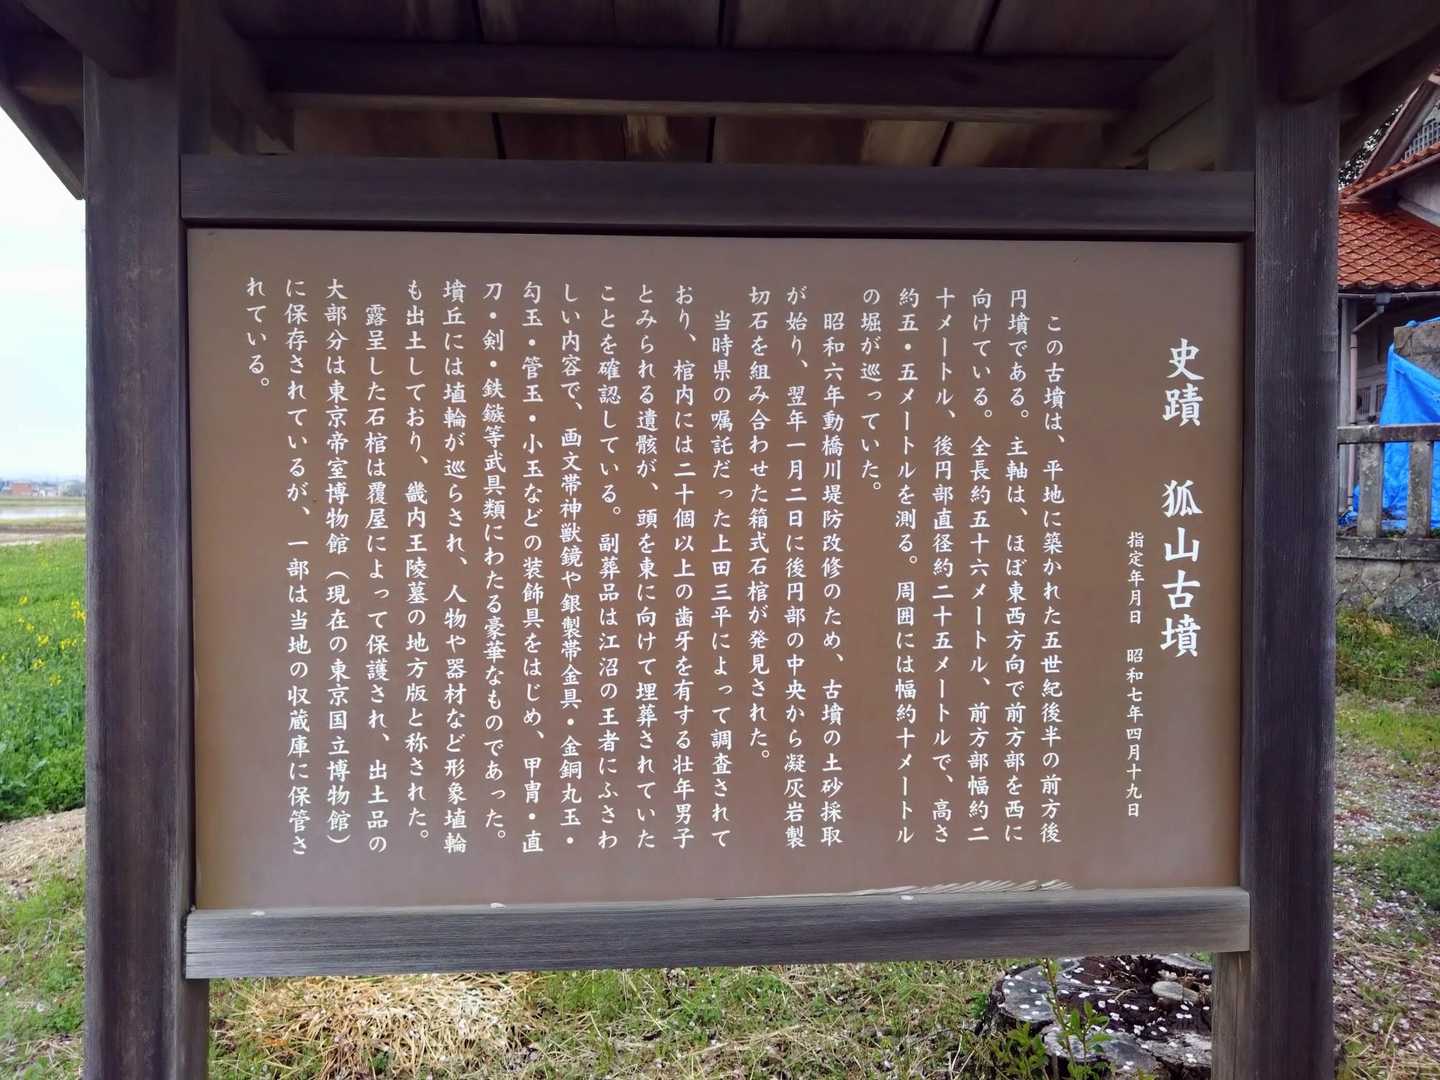 史蹟　狐山古墳
指定年月日　昭和七年四月十九日
　この古墳は、平地に築かれた五世紀後半の前方後
円墳である。主軸は、ほぼ東西方向で前方部を西に
向けている。全長約五十六メートル、前方部幅約二
十メートル、後円部直径約二十五メートルで、高さ
約五・五メートルを測る。周囲には幅約十メートル
の堀が巡っていた。
　昭和六年動橋川堤防改修のため、古墳の土砂採取
が始り、翌年一月二日に後円部の中央から凝灰岩製
切石を組み合わせた箱式石棺が発見された。
　当時県の嘱託だった上田三平によって調査されて
おり、棺内には二十個以上の歯牙を有する壮年男子
とみられる遺骸が、頭を東に向けて埋葬されていた
ことを確認している。副葬品は江沼の王者にふさわ
しい内容で、画文帯神獣鏡や銀製帯金具・金銅丸玉・
勾玉・管玉・小玉などの装飾具をはじめ、甲冑・直
刀・剣・鉄鏃等武具類にわたる豪華なものであった。
墳丘には埴輪が巡らされ、人物や器材など形象埴輪
も出土しており、畿内王陵墓の地方版と称された。
　露呈した石棺は覆屋によって保護され、出土品の
大部分は東京帝室博物館（現在の東京国立博物館）
に保存されているが、一部は当地の収蔵庫に保管さ
れている。